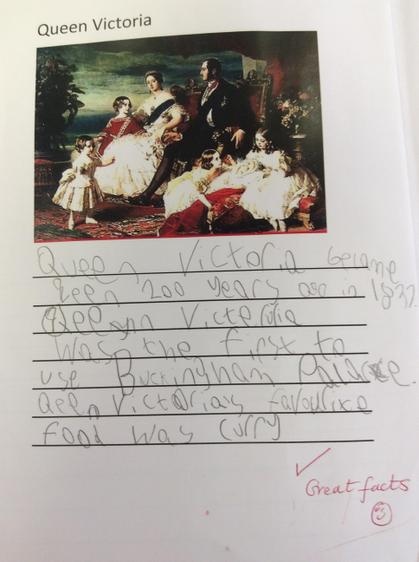 Queen Victoria
Queen Victoria became
Qeen 200 years ago in 1837.
Qeeonn Victoria
was the first to
use Buckingham Palace.
Qeen Victorias favourixe
food was curry
✓
Great facts